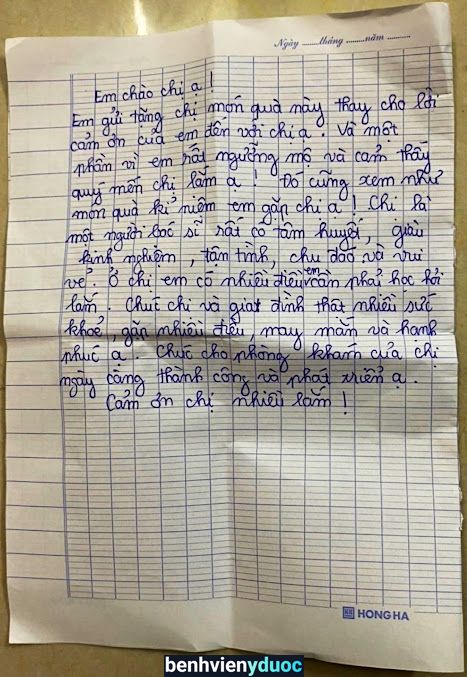 Ngày ........tháng ........năm ..........
Em chào chị ạ !
Em gửi tặng chị món quà này thay cho lời
cảm ơn của em đến với chị ạ . Và một
phần vì em rất ngưỡng mộ và cảm thấy
quý mến chị lắm ạ ! Đó cũng xem như
món quà kỉ niệm em gặp chị ạ ! Chị là
một người bác sĩ rất có tâm huyết, giàu
kinh nghiệm , tận tình, chu đáo và vui
vẻ . Ở chị em có nhiều điều em cần phải học hỏi
lắm . Chúc chị và gia đình thật nhiều sức
khoẻ , gặp nhiều điều , may mắn và hạnh
phúc ạ . Chúc cho phòng khám của chị
ngày càng thành công và phát triển ạ .
Cảm ơn chị nhiều lắm !
HONG HA
benhvienyduoc